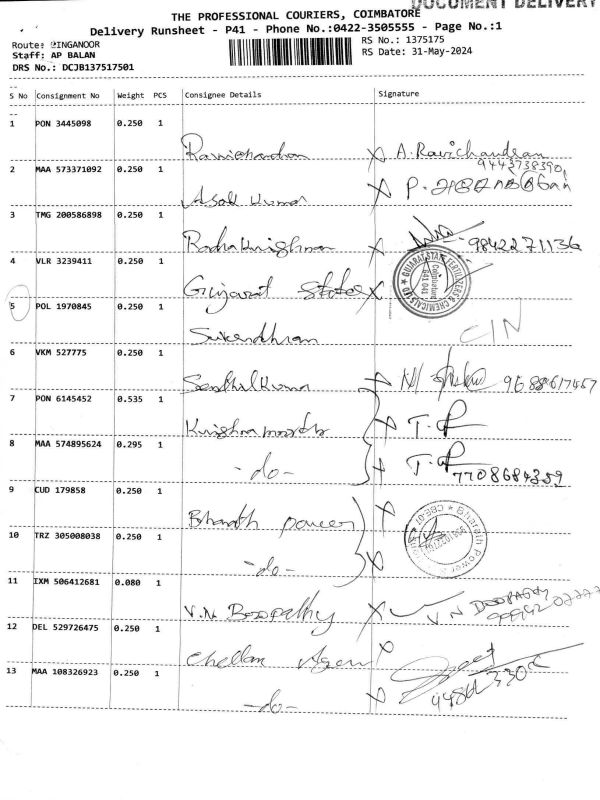 DOCUMENT DELIVERY
THE PROFESSIONAL COURIERS, COIMBATORE
Delivery Runsheet - P41 - Phone No.:0422-3505555 - Page No.:1
Route: PINGANOOR
RS No.: 1375175
Staff: AP BALAN
RS Date: 31-May-2024
DRS No.: DCJB137517501
S No Consignment No Weight PCS Consignee Details Signature
1 PON 3445098 0.250 1
Ravichandran A. Ravichandran
9443738390
2 MAA 573371092 0.250 1
Asok Kumar
3 TMG 200586898 0.250 1
Radhakrishnan 9842271136
4 VLR 3239411 0.250 1
Gujarat States
GUJARAT STATE FERTILIZERS & CHEMICALS LTD
Coimbatore
641 041
5 POL 1970845 0.250 1
CIN
6 VKM 527775 0.250 1
Senthil Kumar
7 PON 6145452 0.535 1
Krishnamoorthy
8 MAA 574895624 0.295 1
-do-
7708684359
9 CUD 179858 0.250 1
Bharath power
Bharath Power
10 TRZ 305008038 0.250 1
-do-
11 IXM 506412681 0.080 1
V.N. Boopathy V N BOOPATHY
12 DEL 529726475 0.250 1
Chellam Agen
13 MAA 108326923 0.250 1
-do-